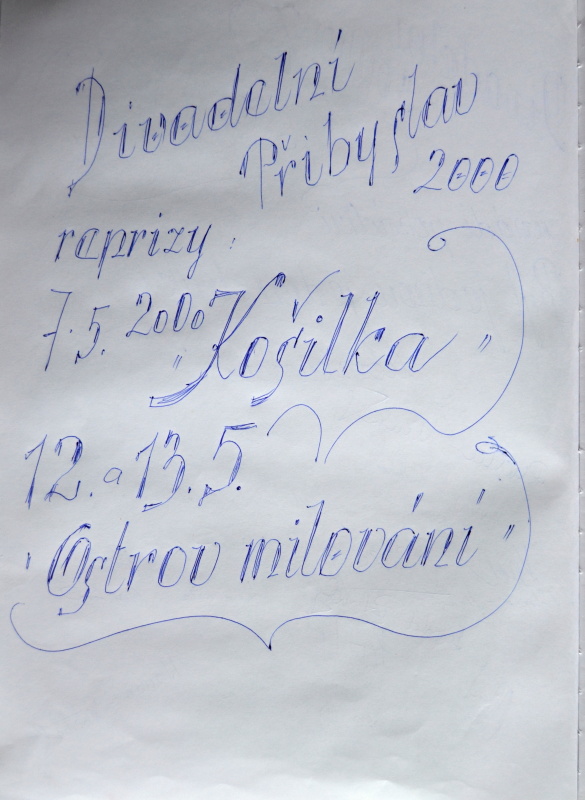 Divadelní
Přibyslav
2000
reprízy :
7.5. 2000
"Košilka"
12. a 13.5.
"Ostrov milování"